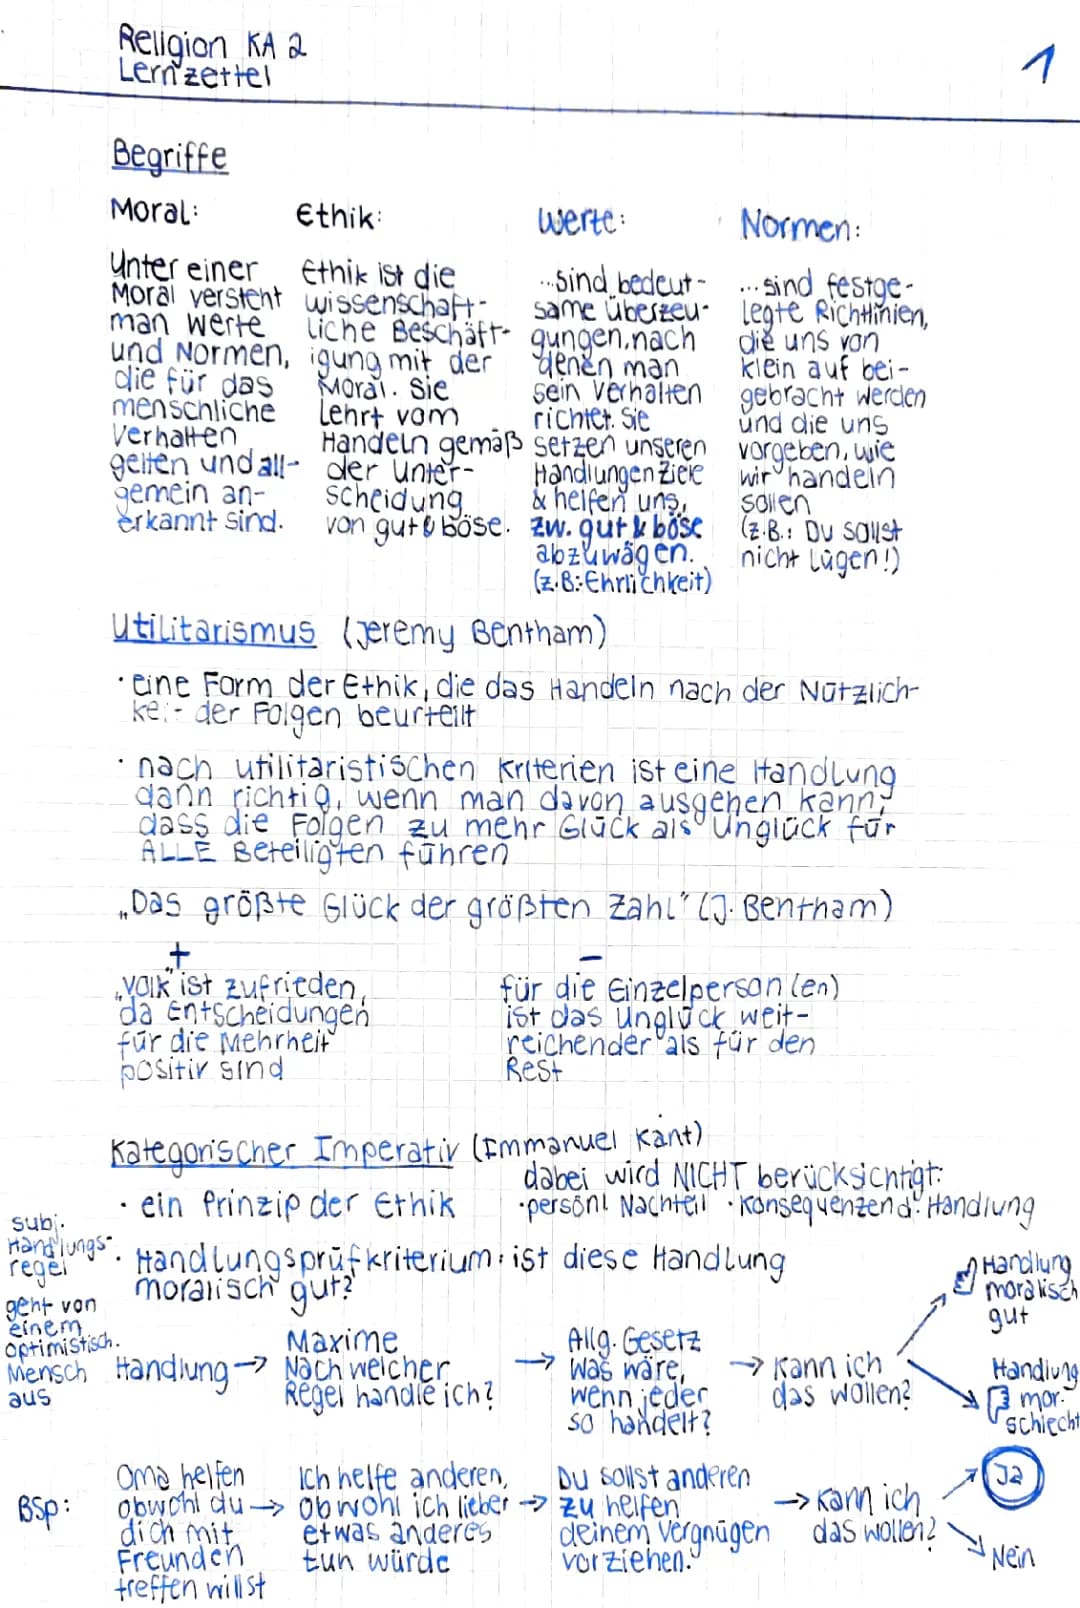 Religion KA 2
Lernzettel
1
Begriffe
Moral:
Unter einer
Moral versteht
man Werte
und Normen,
die für das
menschliche
Verhalten
gelten und all-
gemein an-
erkannt sind.
Ethik:
Ethik ist die
wissenschaft-
liche Beschäft-
igung mit der
Moral. Sie
Lehrt vom
Handeln gemäß
der Unter-
scheidung
von gut & böse.
Werte:
...sind bedeut-
same Überzeu-
gungen, nach
denen man
sein Verhalten
richtet. Sie
setzen unseren
Handlungen Ziele
& helfen uns,
zw. gut & böse
abzuwägen.
(z.B.: Ehrlichkeit)
Normen:
... sind festge-
legte Richtlinien,
die uns von
klein auf bei-
gebracht werden
und die uns
vorgeben, wie
wir handeln
sollen
(z.B.: Du sollst
nicht Lügen!)
Utilitarismus (Jeremy Bentham)
· eine Form der Ethik, die das Handeln nach der Nützlich-
kei- der Folgen beurteilt
· nach utilitaristischen Kriterien ist eine Handlung
dann richtig, wenn man davon ausgehen kann,
dass die Folgen zu mehr Glück als Unglück für
ALLE Beteiligten führen
„Das größte Glück der größten Zahl" (J. Bentham)
+
„Volk" ist zufrieden,
da Entscheidungen
für die Mehrheit
positiv sind
–
für die Einzelperson(en)
ist das Unglück weit-
reichender als für den
Rest
Kategorischer Imperativ (Immanuel Kant)
· ein Prinzip der Ethik
dabei wird NICHT berücksichtigt:
· persönl. Nachteil · Konsequenzen d. Handlung
· Handlungsprüfkriterium: ist diese Handlung
moralisch gut?
subj.
Handlungs-
regel
geht von
einem
optimistisch.
Mensch
aus
Handlung →
Maxime
Nach welcher
Regel handle ich?
→
Allg. Gesetz
Was wäre,
wenn jeder
so handelt?
→ Kann ich
das wollen?
Handlung
moralisch
gut
Handlung
mor.
schlecht
Bsp:
Oma helfen
obwohl du →
dich mit
Freunden
treffen willst
Ich helfe anderen,
obwohl ich lieber →
etwas anderes
tun würde
Du sollst anderen
zu helfen
deinem Vergnügen
vorziehen.
→ Kann ich
das wollen?
Ja
Nein